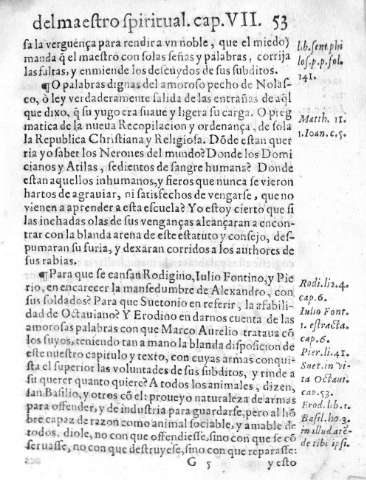 del maestro spiritual. cap. VII. 53
sa la verguença para rendir a vn noble, que el miedo)
manda q̃ el maestro con solas señas y palabras, corrija
las faltas, y enmiende los descuydos de sus subditos.
¶O palabras dignas del amoroso pecho de Nolas-
co, ò ley verdaderamente salida de las entrañas de aq̃l
que dixo, q̃ su yugo era suaue y ligera su carga. O preg
matica de la nueua Recopilacion y ordenança, de sola
la Republica Christiana y Religiosa. Dõde estan quer
ria yo saber los Nerones del mundo? Donde los Domi
cianos y Atilas, sedientos de sangre humana? Donde
estan aquellos inhumanos, y fieros que nunca se vieron
hartos de agrauiar, ni satisfechos de vengarse, que no
vienen a aprender a esta escuela? Yo estoy cierto que si
las inchadas olas de sus venganças alcançaran a encon-
trar con la blanda arena de este estatuto y consejo, des-
pumaran su furia, y dexaran corridos a los authores de
sus rabias.
¶Para que se cansan Rodigino, Iulio Fontino, y Pie
rio, en encarecer la mansedumbre de Alexandro, con
sus soldados? Para que Suetonio en referir, la afabili-
dad de Octauiano? Y Erodino en darnos cuenta de las
amorosas palabras con que Marco Aurelio trataua cõ
los suyos, teniendo tan a mano la blanda disposicion de
este nuestro capitulo y texto, con cuyas armas conquis-
ta el superior las voluntades de sus subditos, y rinde a
su querer quanto quiere? A todos los animales, dizen,
san Basilio, y otros cõ el: proueyo naturaleza de armas
para offender, y de industria para guardarse, pero al hõ
bre capaz de razon como animal sociable, y amable de
todos, diole, no con que offendiesse, sino con que se cõ
seruasse, no con que destruyesse, sino con que reparasse:
G 5 y esto
lib. sent. phi
los. p. p. fol.
141.
Matth. 11.
1. Ioan. c. 5.
Rodi. li 2. 4.
cap. 6.
Iulio Font.
1. estracta.
cap. 6.
Pier. li. 41.
Suet. in vi
ta Octaui.
cap. 53.
Erod. lib. 1.
Basil. ho. 3.
in illud atẽ-
de tibi ipsi.